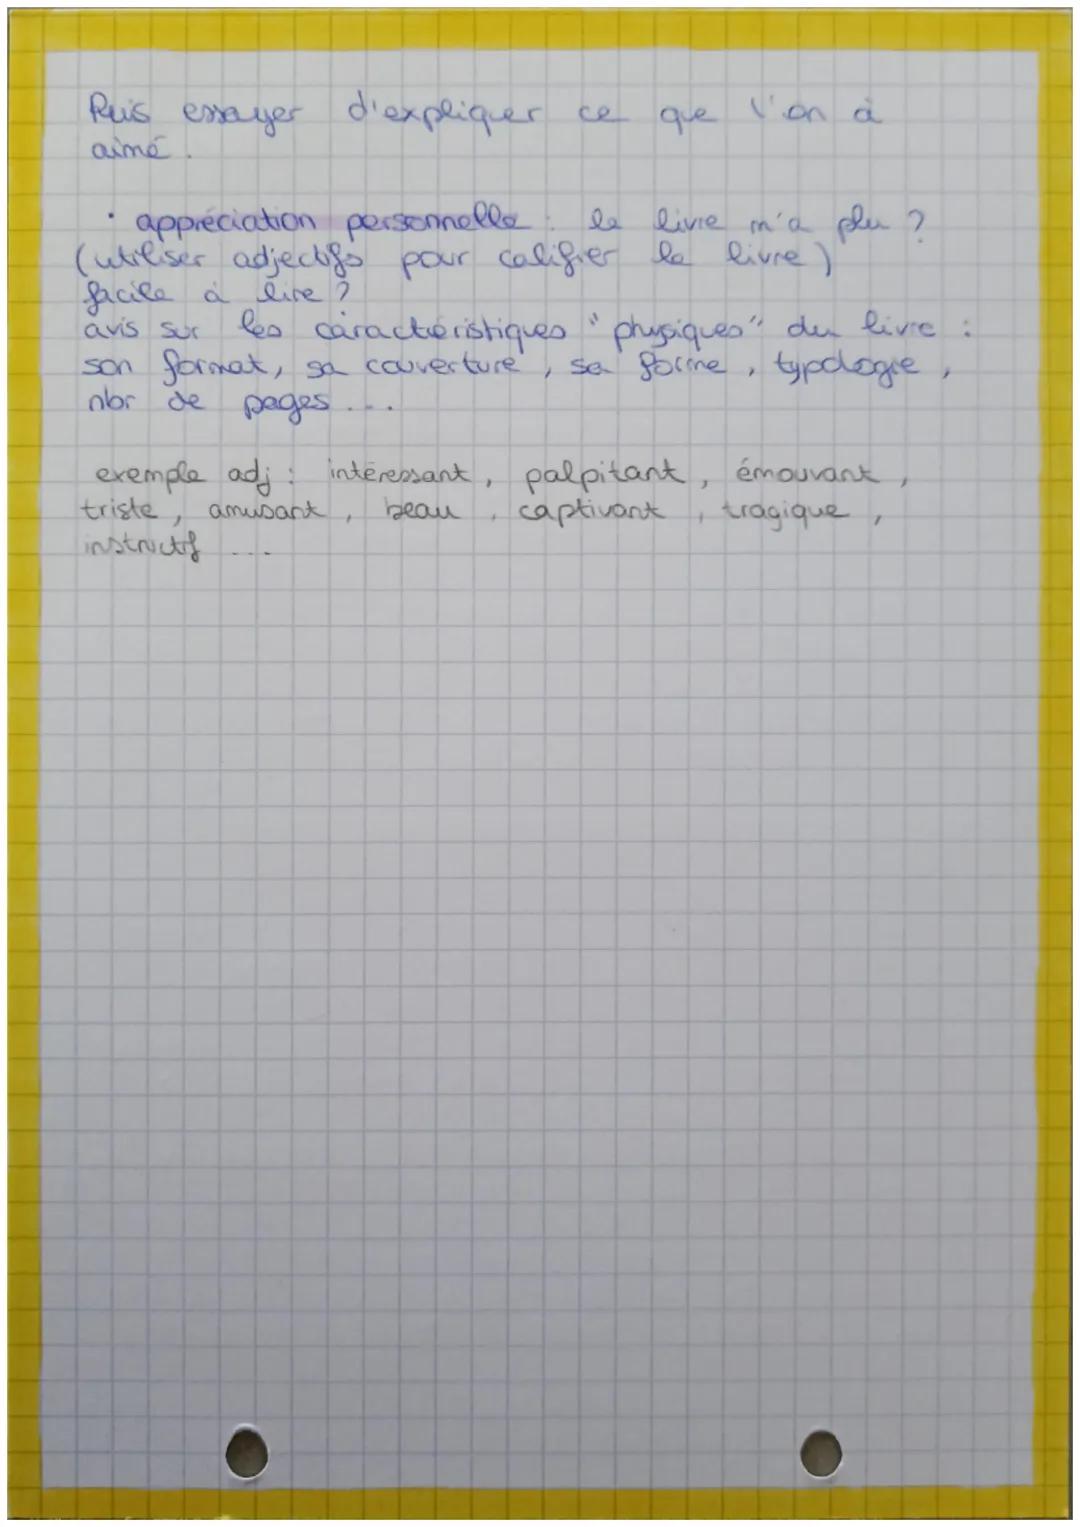 Puis essayer d'expliquer ce que l'on à
aimé.
• appréciation personnelle : le livre m'a plu ?
(utiliser adjectifs pour califier le livre)
facile à lire ?
avis sur les caractéristiques "physiques" du livre :
son format, sa couverture, sa forme, typologie,
nbr de pages ...
exemple adj : intéressant, palpitant, émouvant,
triste, amusant, beau, captivant, tragique,
instructif ...